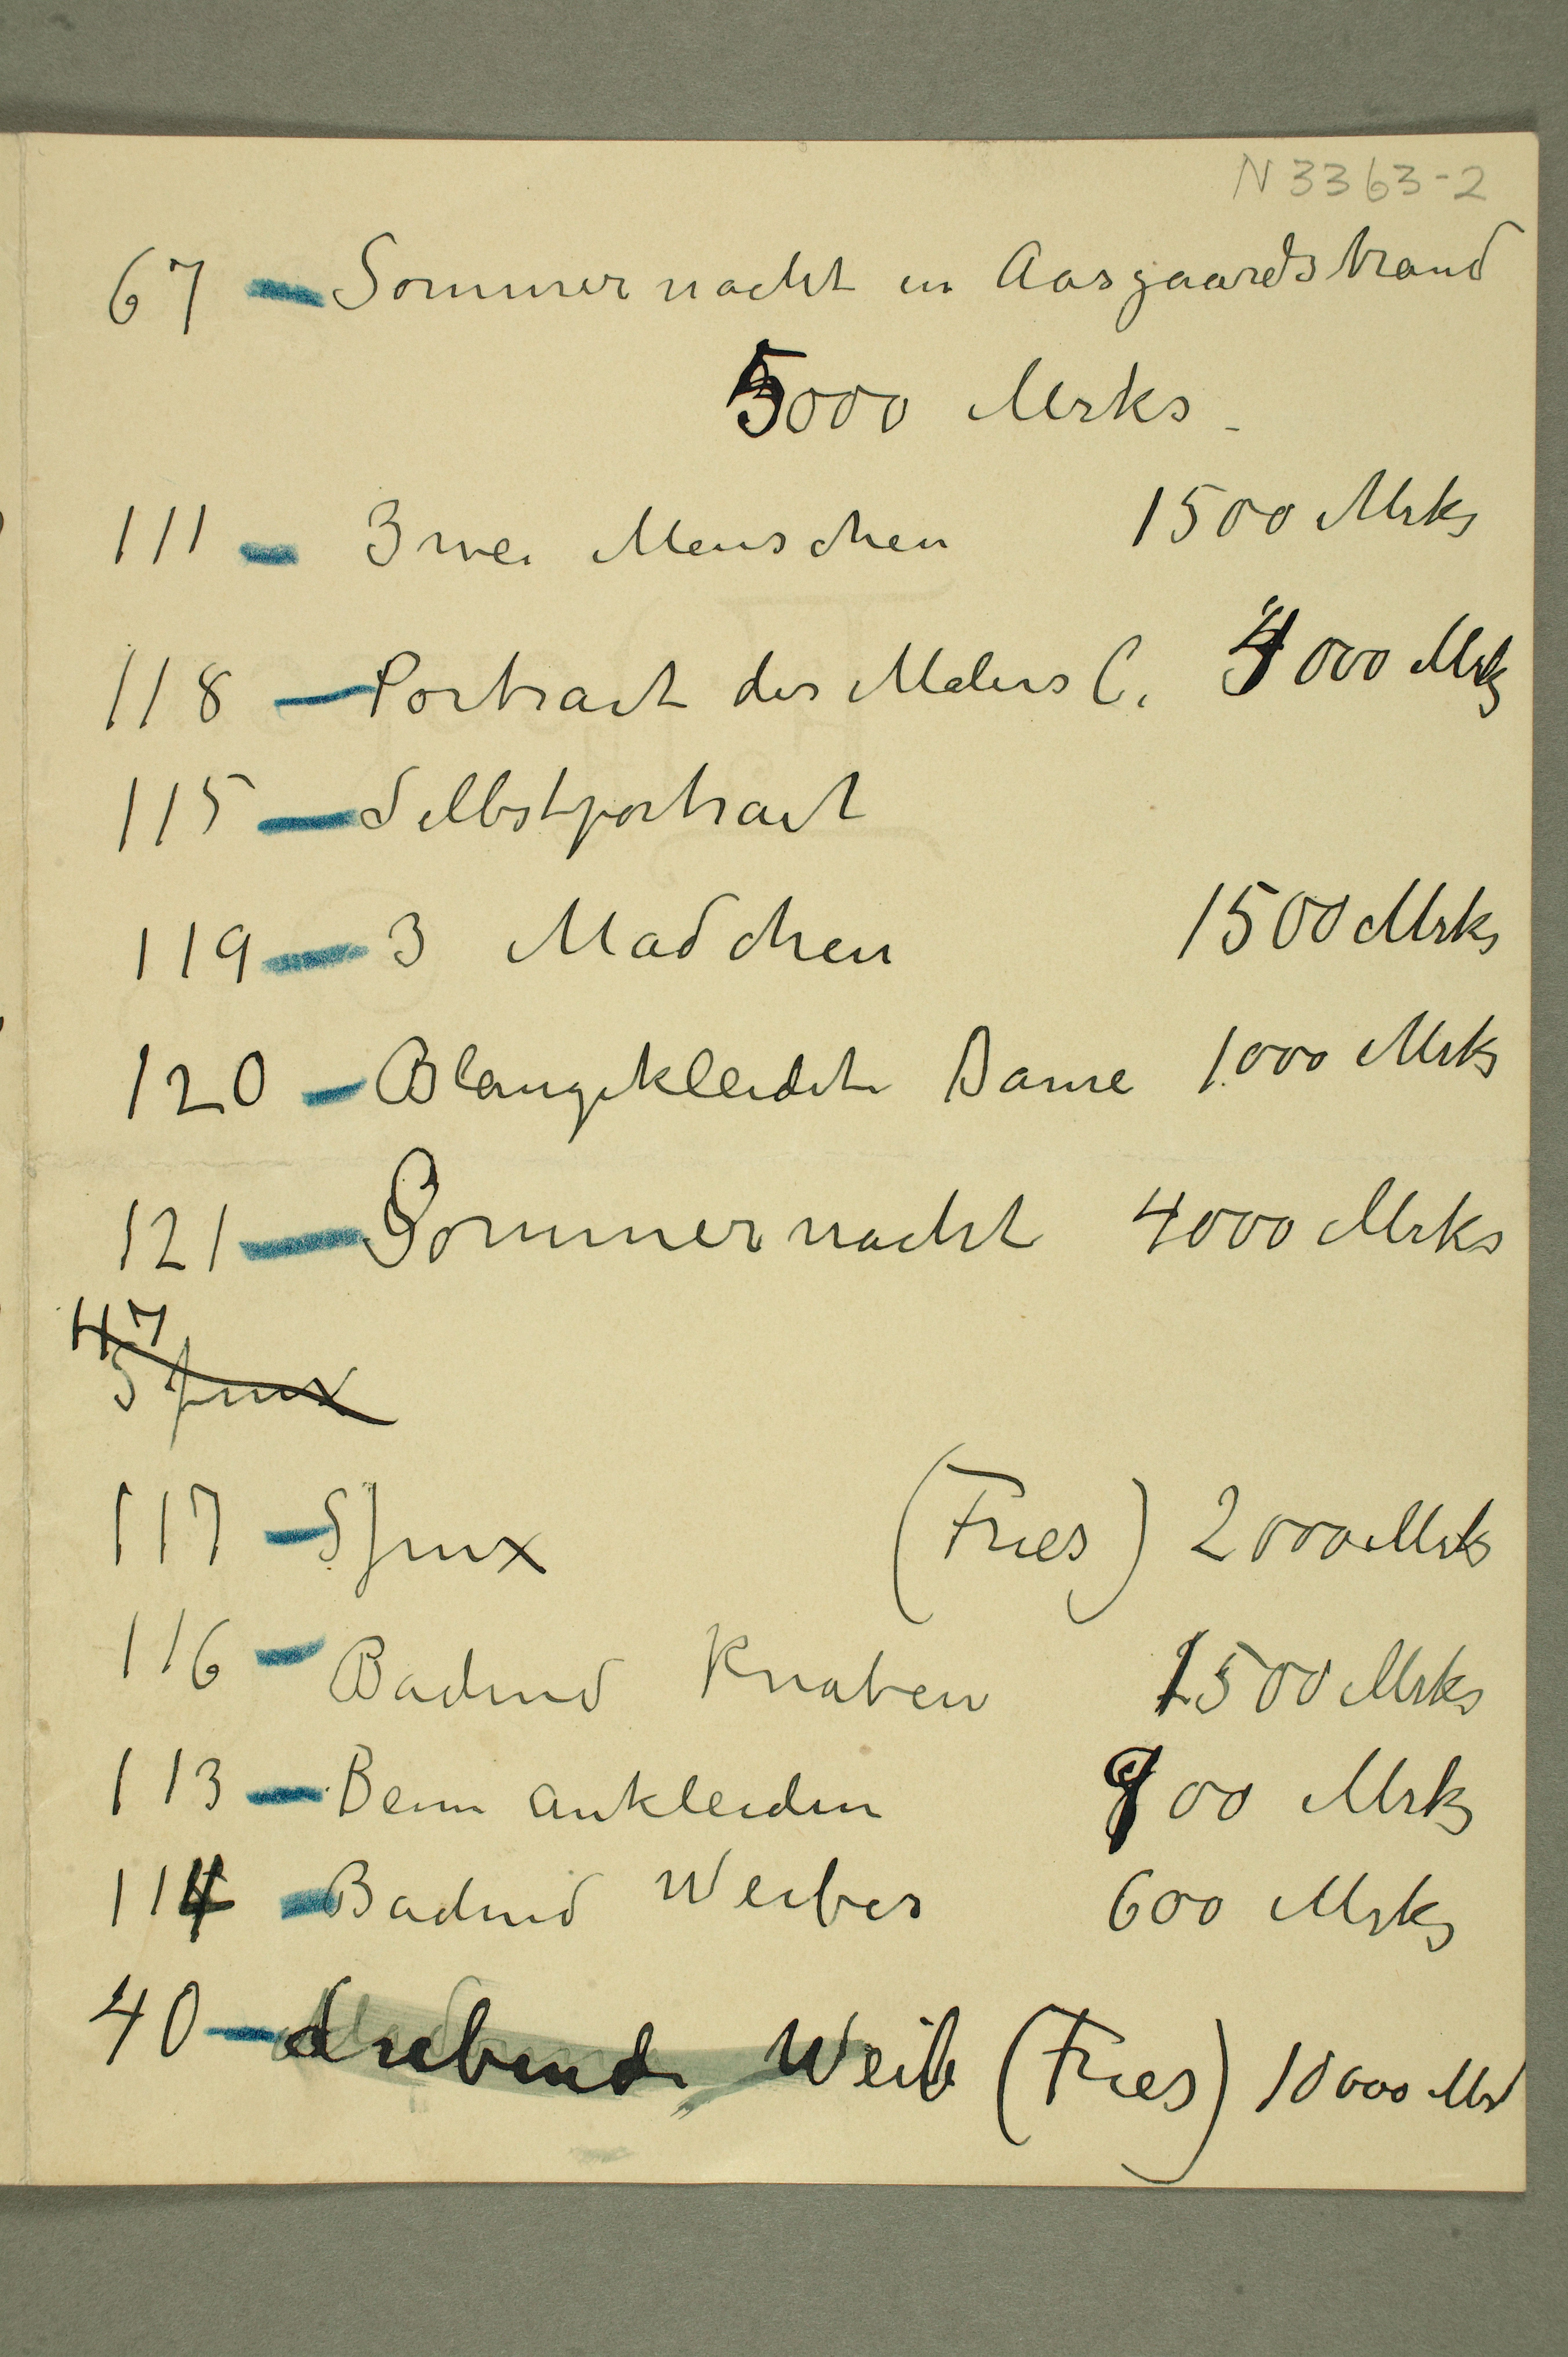 N 3363-2
67 — Sommernacht in Aasgaardstrand
5000 Mrks -
111 — Zwei Menschen 1500 Mrks
118 — Portrait des Malers C. 4000 Mrks
115 — Selbstportrait
119 — 3 Madchen 1500 Mrks
120 — Blaugekleidete Dame 1000 Mrks
121 — Sommernacht 4000 Mrks
117
Sfinx
117 — Sfinx (Fries) 2000 Mrks
116 — Badend Knaben 1500 Mrks
113 — Beim ankleiden 900 Mrks
114 — Badend Weiber 600 Mrks
40 — Liebende Weib (Fries) 10000 Mrk